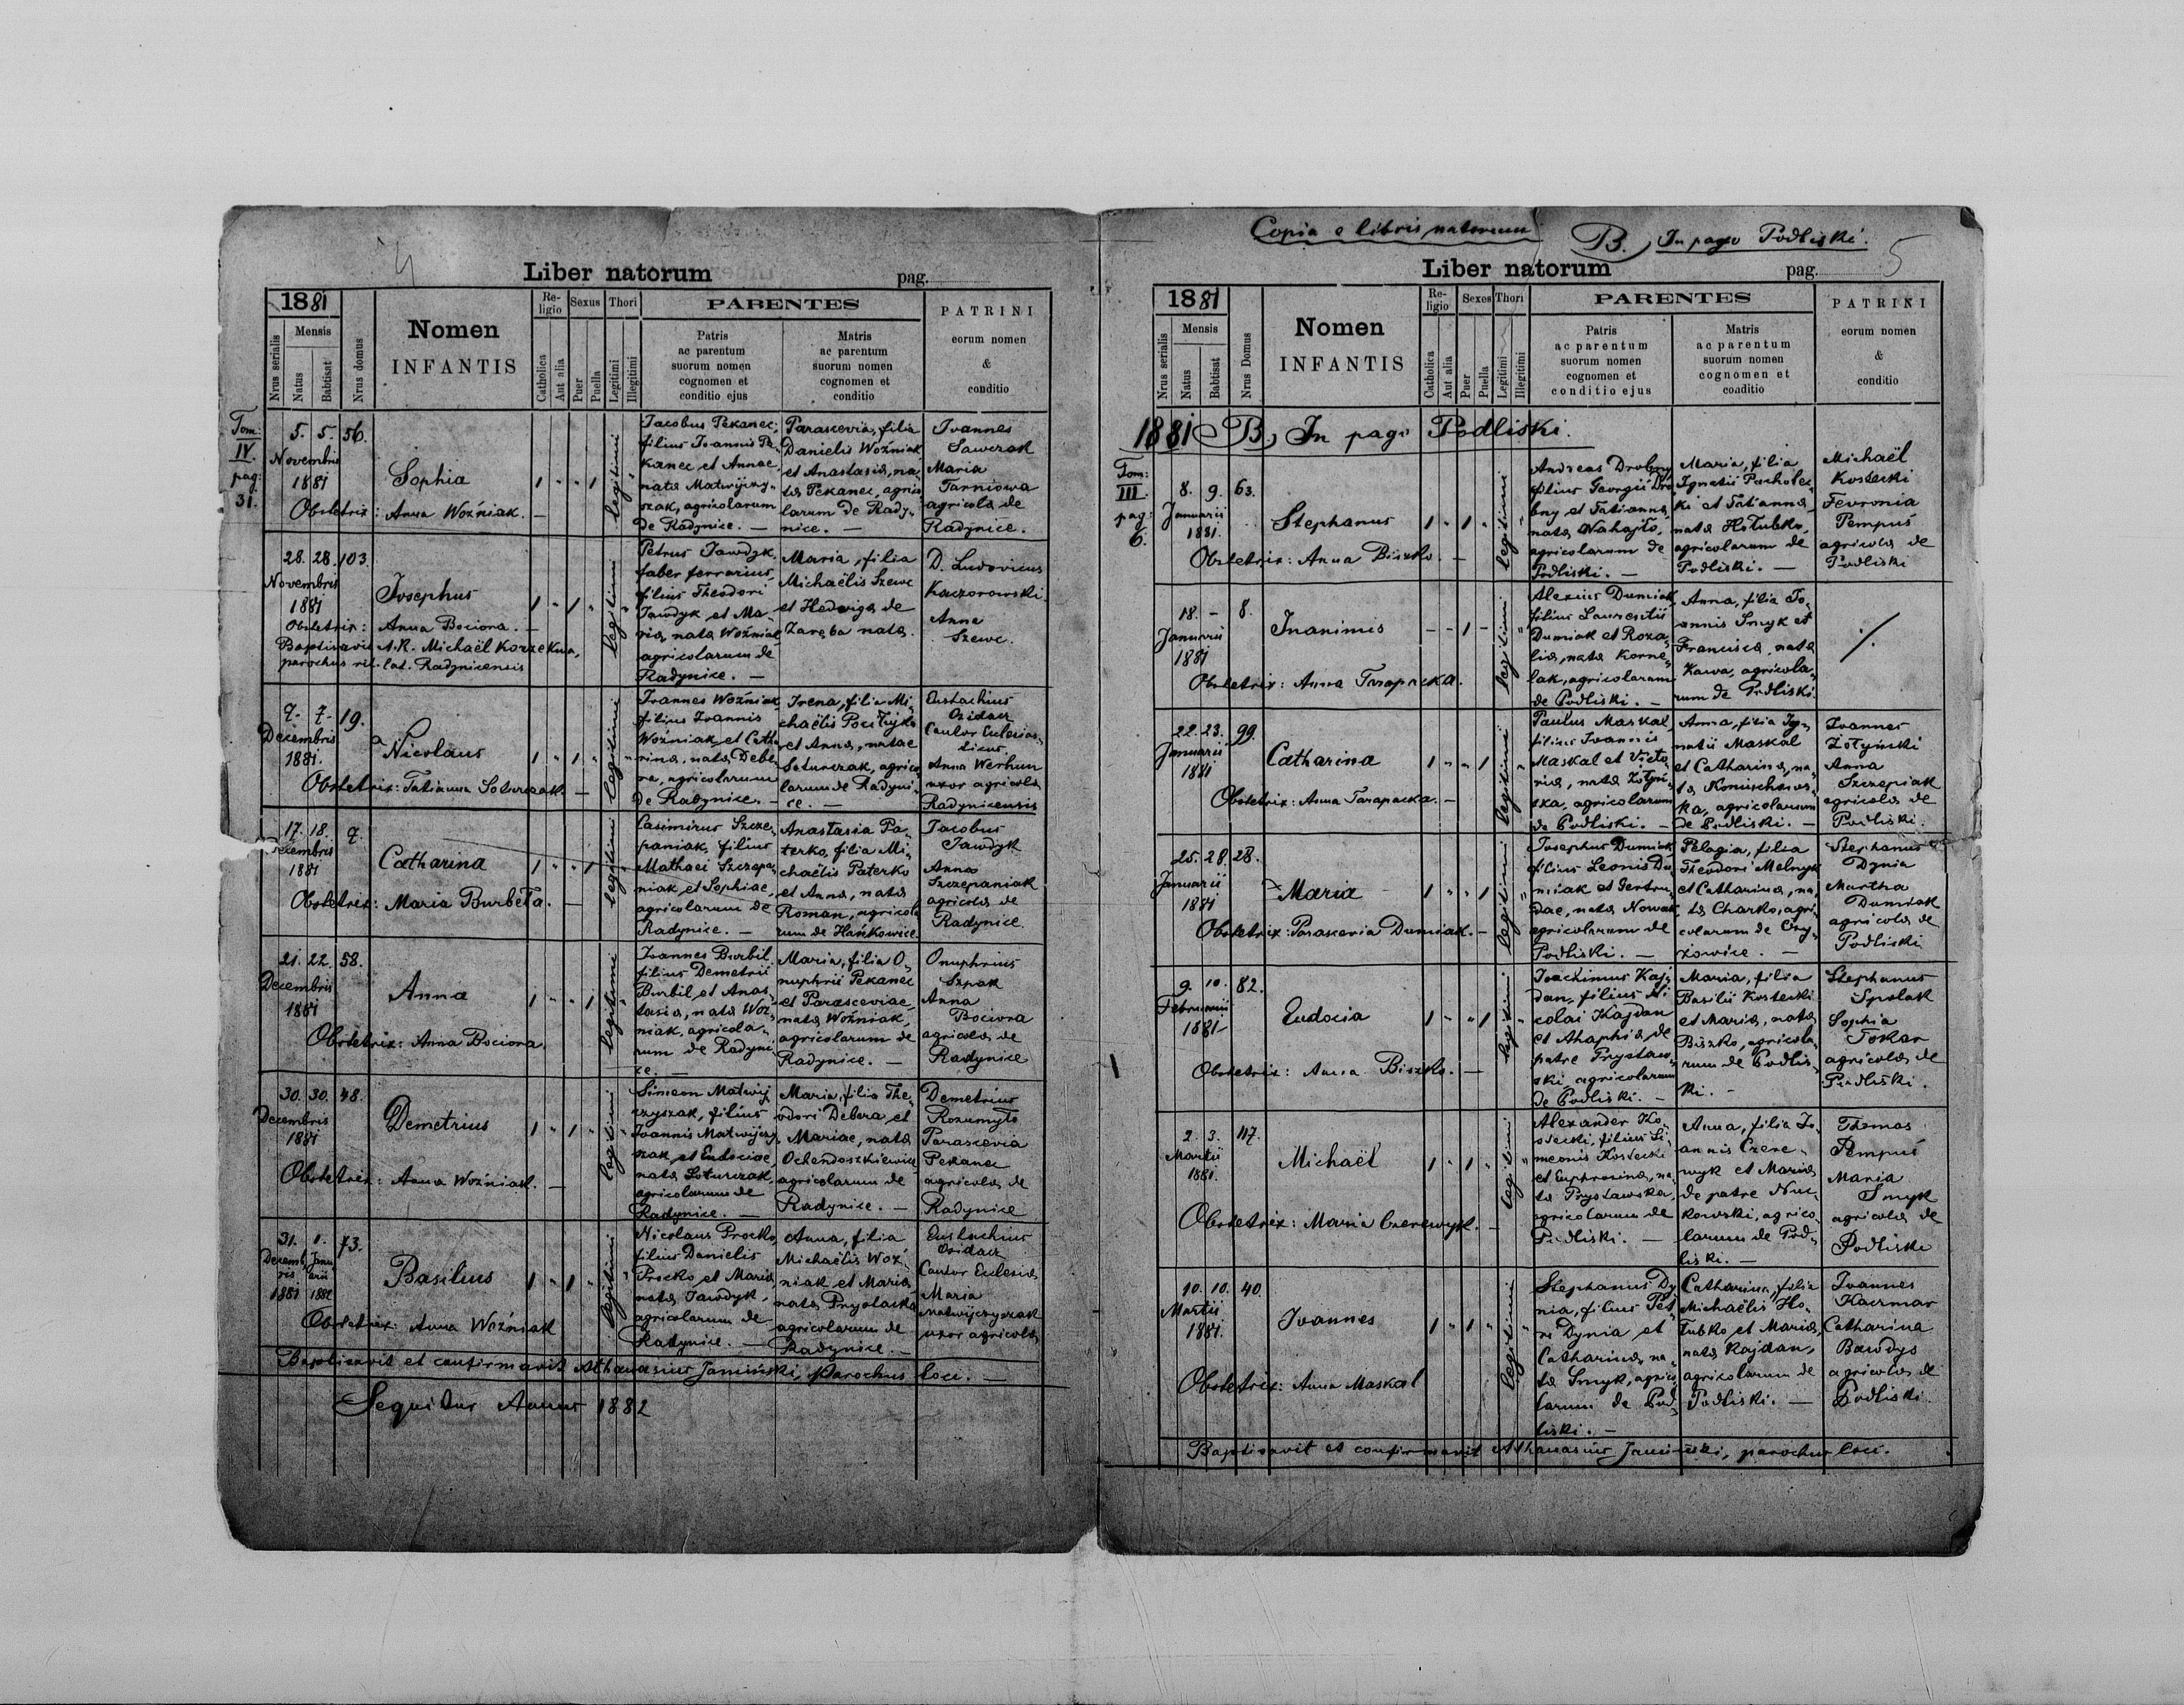 4
Liber natorum pag.
1881
Nrus serialis
Mensis
Natus
Babtisat
Nrus domus
Nomen
INFANTIS
Re-
ligio
Catholica
Aut alia
Sexus
Puer
Puella
Thori
Legitimi
Illegitimi
PARENTES
Patris
ac parentum
suorum nomen
cognomen et
conditio ejus
Matris
ac parentum
suorum nomen
cognomen et
conditio
PATRINI
eorum nomen
&
conditio
Tom:
IV.
pag:
31.
5. 5. 56.
Novembris
1881
Sophia
1 " " 1
legitimi
Obstetrix: Anna Woźniak. —
Jacobus Pekanec,
filius Joannis Pe-
kanec et Annae
nata Matwijczy-
szak, agricolarum
de Radynice. —
Parascevia, filia
Danielis Woźniak
et Anastasia, na-
ta Pekanec, agrico-
larum de Rady-
nice. —
Joannes
Sawczak
Maria
Tarniowa
agricola de
Radynice.
28. 28. 103.
Novembris
1881
Josephus
1 " 1 "
legitimi
Obstetrix: Anna Bociora. —
Baptisavit A.R. Michaël Korzekwa,
parochus rit. lat. Radynicensis
Petrus Jawdyk,
faber ferrarius,
filius Theodori
Jawdyk et Ma-
ria, nata Woźniak
agricolarum de
Radynice. —
Maria, filia
Michaëlis Szewc
et Hedwiga de
Zaręba nata.
D. Ludovicus
Kaczorowski.
Anna
Szewc.
7. 7. 19.
Decembris
1881.
Nicolaus
1 " 1 "
legitimi
Obstetrix: Tatianna Soturczak. —
Joannes Woźniak,
filius Joannis
Woźniak et Catha-
rina, nata Debe-
ra, agricolarum
de Radynice. —
Irena, filia Mi-
chaëlis Pociłujko
et Anna, natae
Soturczak, agrico-
larum de Radyni-
ce. —
Eustachius
Osidacz
Cantor Ecclesias-
ticus.
Anna Werhun
uxor agricola
Radynicensis
17. 18. 9.
Decembris
1881
Catharina
1 " " 1
legitimi
Obstetrix: Maria Burbeła. —
Casimirus Szcze-
paniak, filius
Mathaei Szczepa-
niak et Sophiae,
agricolarum de
Radynice. —
Anastasia Pa-
terko, filia Mi-
chaëlis Paterko
et Anna, nata
Roman, agricola-
rum de Hańkowice.
Jacobus
Jawdyk
Anna
Szczepaniak
agricola de
Radynice
21. 22. 58.
Decembris
1881
Anna
1 " " 1
legitimi
Obstetrix: Anna Bociora.
Joannes Burbil.
filius Demetrii
Burbil et Anas-
tasia, nata Woź-
niak, agricola-
rum de Radyni-
ce. —
Maria, filia O-
nuphrii Pekanec
et Parasceviae
nata Woźniak,
agricolarum de
Radynice. —
Onuphrius
Szpak
Anna
Bociora
agricola de
Radynice
30. 30. 48.
Decembris
1881
Demetrius
1 " 1 "
legitimi
Obstetrix: Anna Woźniak. —
Simeon Matwij-
czyszak, filius
Joannis Matwijczy-
szak et Eudociae,
nata Soturczak,
agricolarum de
Radynice. —
Maria, filia The-
odori Debera et
Mariae, nata
Ochendoszkiewicz
agricolarum de
Radynice. —
Demetrius
Rozumyło
Parascevia
Pekanec
agricola de
Radynice
31. 1. 73.
Decemb- Janu-
ris arii
1881 1882
Basilius
1 " 1 "
legitimi
Obstetrix: Anna Woźniak
Nicolaus Procko,
filius Danielis
Procko et Maria
nata Jawdyk,
agricolarum de
Radynice. —
Anna, filia
Michaëlis Woź-
niak et Maria
nata Prystacka
agricolarum de
Radynice. —
Eustachius
Osidacz
Cantor Ecclesia
Maria
Matwijczyszak
uxor agricola
Baptisavit et confirmavit Athanasius Jamiński, parochus loci. —
Sequitur Annus 1882
Copia e libris natorum B. In pago Podliski.
Liber natorum pag. 5
1881
Nrus serialis
Mensis
Natus
Babtisat
Nrus Domus
Nomen
INFANTIS
Re-
ligio
Catholica
Aut alia
Sexos
Puer
Puella
Thori
Legitimi
Illegitimi
PARENTES
Patris
ac parentum
suorum nomen
cognomen et
conditio ejus
Matris
ac parentum
suorum nomen
cognomen et
coaditio
PATRINI
eorum nomen
&
conditio
1881 B, In pago Podliski.
Tom:
III.
pag:
6.
8. 9. 63.
Januarii
1881.
Stephanus
1 " 1 "
legitimi
Obstetrix: Anna Biszko. —
Andreas Drobny
filius Georgii Dro-
bny et Tatianna,
nata Nahajło,
agricolarum de
Podliski. —
Maria, filia
Ignatii Pacholec-
ki et Tatianna,
nata Hołubko,
agricolarum de
Podliski. —
Michaël
Kostecki
Fevronia
Pempuś
agricola de
Podliski
18. — 8.
Januarii
1881
Inanimis
— — 1 —
legitimi
Obstetrix: Anna Tarapacka.
Alexius Dumiak,
filius Laurentii
Dumiak et Roza-
lia, nata Korne-
lak, agricolarum
de Podliski. —
Anna, filia Jo-
annis Smyk et
Francisca, nata
Kawa, agricola-
rum de Podliski
·/.
22. 23. 99.
Januarii
1881
Catharina
1 " " 1
legitimi
Obstetrix: Anna Tarapacka. —
Paulus Maskal,
filius Joannis
Maskal et Victo-
ria, nata Żołyń-
ska, agricolarum
de Podliski. —
Anna, filia Ig-
natii Maskal
et Catharina, na-
ta
ka, agricolarum
de Podliski. —
Joannes
Żołyński
Anna
Szczepiak
agricola de
Podliski.
25. 28. 28.
Januarii
1881
Maria
1 " " 1
legitimi
Obstetrix: Parascevia Dumiak. —
Josephus Dumiak
filius Leonis Du-
miak et Gertru-
dae, nata Nowak
agricolarum de
Podliski. —
Pelagia, filia
Theodori Melnyk
et Catharina, na-
ta Charko, agri-
colarum de Czy-
żowice. —
Stephanus
Dynia
Martha
Dumiak
agricola de
Podliski
9. 10. 82.
Februarii
1881
Eudocia
1 " " 1
legitimi
Obstetrix: Anna Biszko. —
Joachimus Kaj-
dan, filius Ni-
colai Kajdan
et Ahaphia de
patre Prystaw-
ski, agricolarum
de Podliski. —
Maria, filia
Basilii Kostecki
et Maria, nata
Biszko, agricola-
rum de Podlis-
ki. —
Stephanus
Spolak
Sophia
Tokar
agricola de
Podliski.
2. 3. 117.
Martii
1881.
Michaël
1 " 1 "
legitimi
Obstetrix: Maria Czerewyk. —
Alexander Ko-
stecki, filius Si-
meonis Kostecki
et Euphrosina, na-
ta Prystawska,
agricolarum de
Podliski. —
Anna, filia Jo-
annis Czere-
wyk et Maria
de patre
kowski, agrico-
larum de Pod-
liski. —
Thomas
Pempuś
Maria
Smyk
agricola de
Podliski
10. 10. 40.
Martii
1881.
Joannes
1 " 1 "
legitimi
Obstetrix: Anna Maskal
Stephanus Dy-
nia, filius Pet-
ri Dynia et
Catharina, na-
ta Smyk, agrico-
larum de Pod-
liski. —
Catharina, filia
Michaëlis Ho-
łubko et Maria,
nata Kajdan,
agricolarum de
Podliski. —
Joannes
Kaczmar
Catharina
Bawdys
agricola de
Podliski
Baptisavit et confirmavit Athanasius Jamiński, parochus loci.